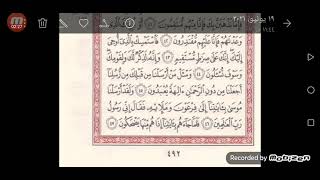 02:27
١٩ يوليو، ٢٠٢١
١١:٤٤
وَعَدْنَٰهُمْ فَإِنَّا عَلَيْهِم مُّقْتَدِرُونَ ٤٢ فَٱسْتَمْسِكْ بِٱلَّذِىٓ أُوحِىَ
إِلَيْكَ إِنَّكَ عَلَىٰ صِرَٰطٍ مُّسْتَقِيمٍ ٤٣ وَإِنَّهُۥ لَذِكْرٌ لَّكَ وَلِقَوْمِكَ
وَسَوْفَ تُسْـَٔلُونَ ٤٤ وَسْـَٔلْ مَنْ أَرْسَلْنَا مِن قَبْلِكَ مِن رُّسُلِنَآ
أَجَعَلْنَا مِن دُونِ ٱلرَّحْمَٰنِ ءَالِهَةً يُعْبَدُونَ ٤٥ وَلَقَدْ أَرْسَلْنَا
مُوسَىٰ بِـَٔايَٰتِنَآ إِلَىٰ فِرْعَوْنَ وَمَلَإِي۟هِۦ فَقَالَ إِنِّى رَسُولُ
رَبِّ ٱلْعَٰلَمِينَ ٤٦ فَلَمَّا جَآءَهُم بِـَٔايَٰتِنَآ إِذَا هُم مِّنْهَا يَضْحَكُونَ ٤٧
٤٩٢
Recorded by
Mobizen